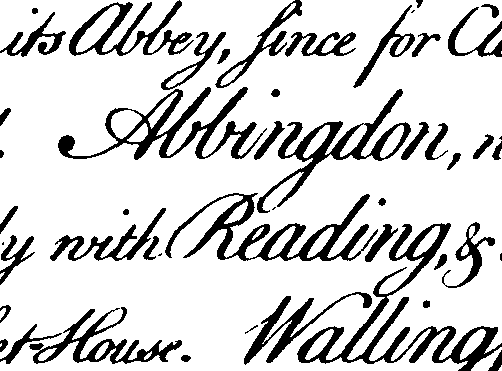 its Abbey, since for
Abbingdon,
with Reading, &
House. Walling